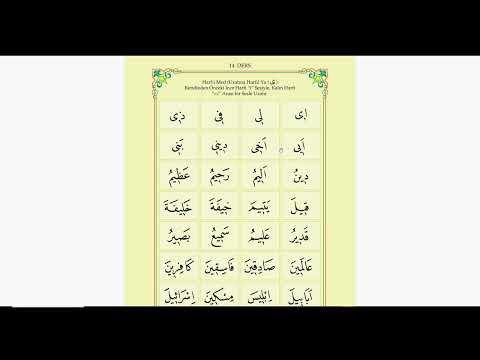 14. DERS
Harf-i Med (Uzatma Harfi) Ya ( ي ):
Kendinden Önceki İnce Harfi "i" Sesiyle, Kalın Harfi
Arası bir Sesle Uzatır
اِى لِى فِى ذِى
اَبِى اَخِى دِينِى بَنِى
دِينُ اَلِيمُ رَحِيمُ عَظِيمُ
قِيلَ يَتِيمَ خِيفَةَ خَلِيفَةَ
قَدِيرُ عَلِيمُ سَمِيعُ بَصِيرُ
عَالَمِينَ صَادِقِينَ فَاسِقِينَ كَافِرِينَ
اَبَابِيلَ اِبْلِيسَ مِسْكِينَ اِسْرَائِيلَ